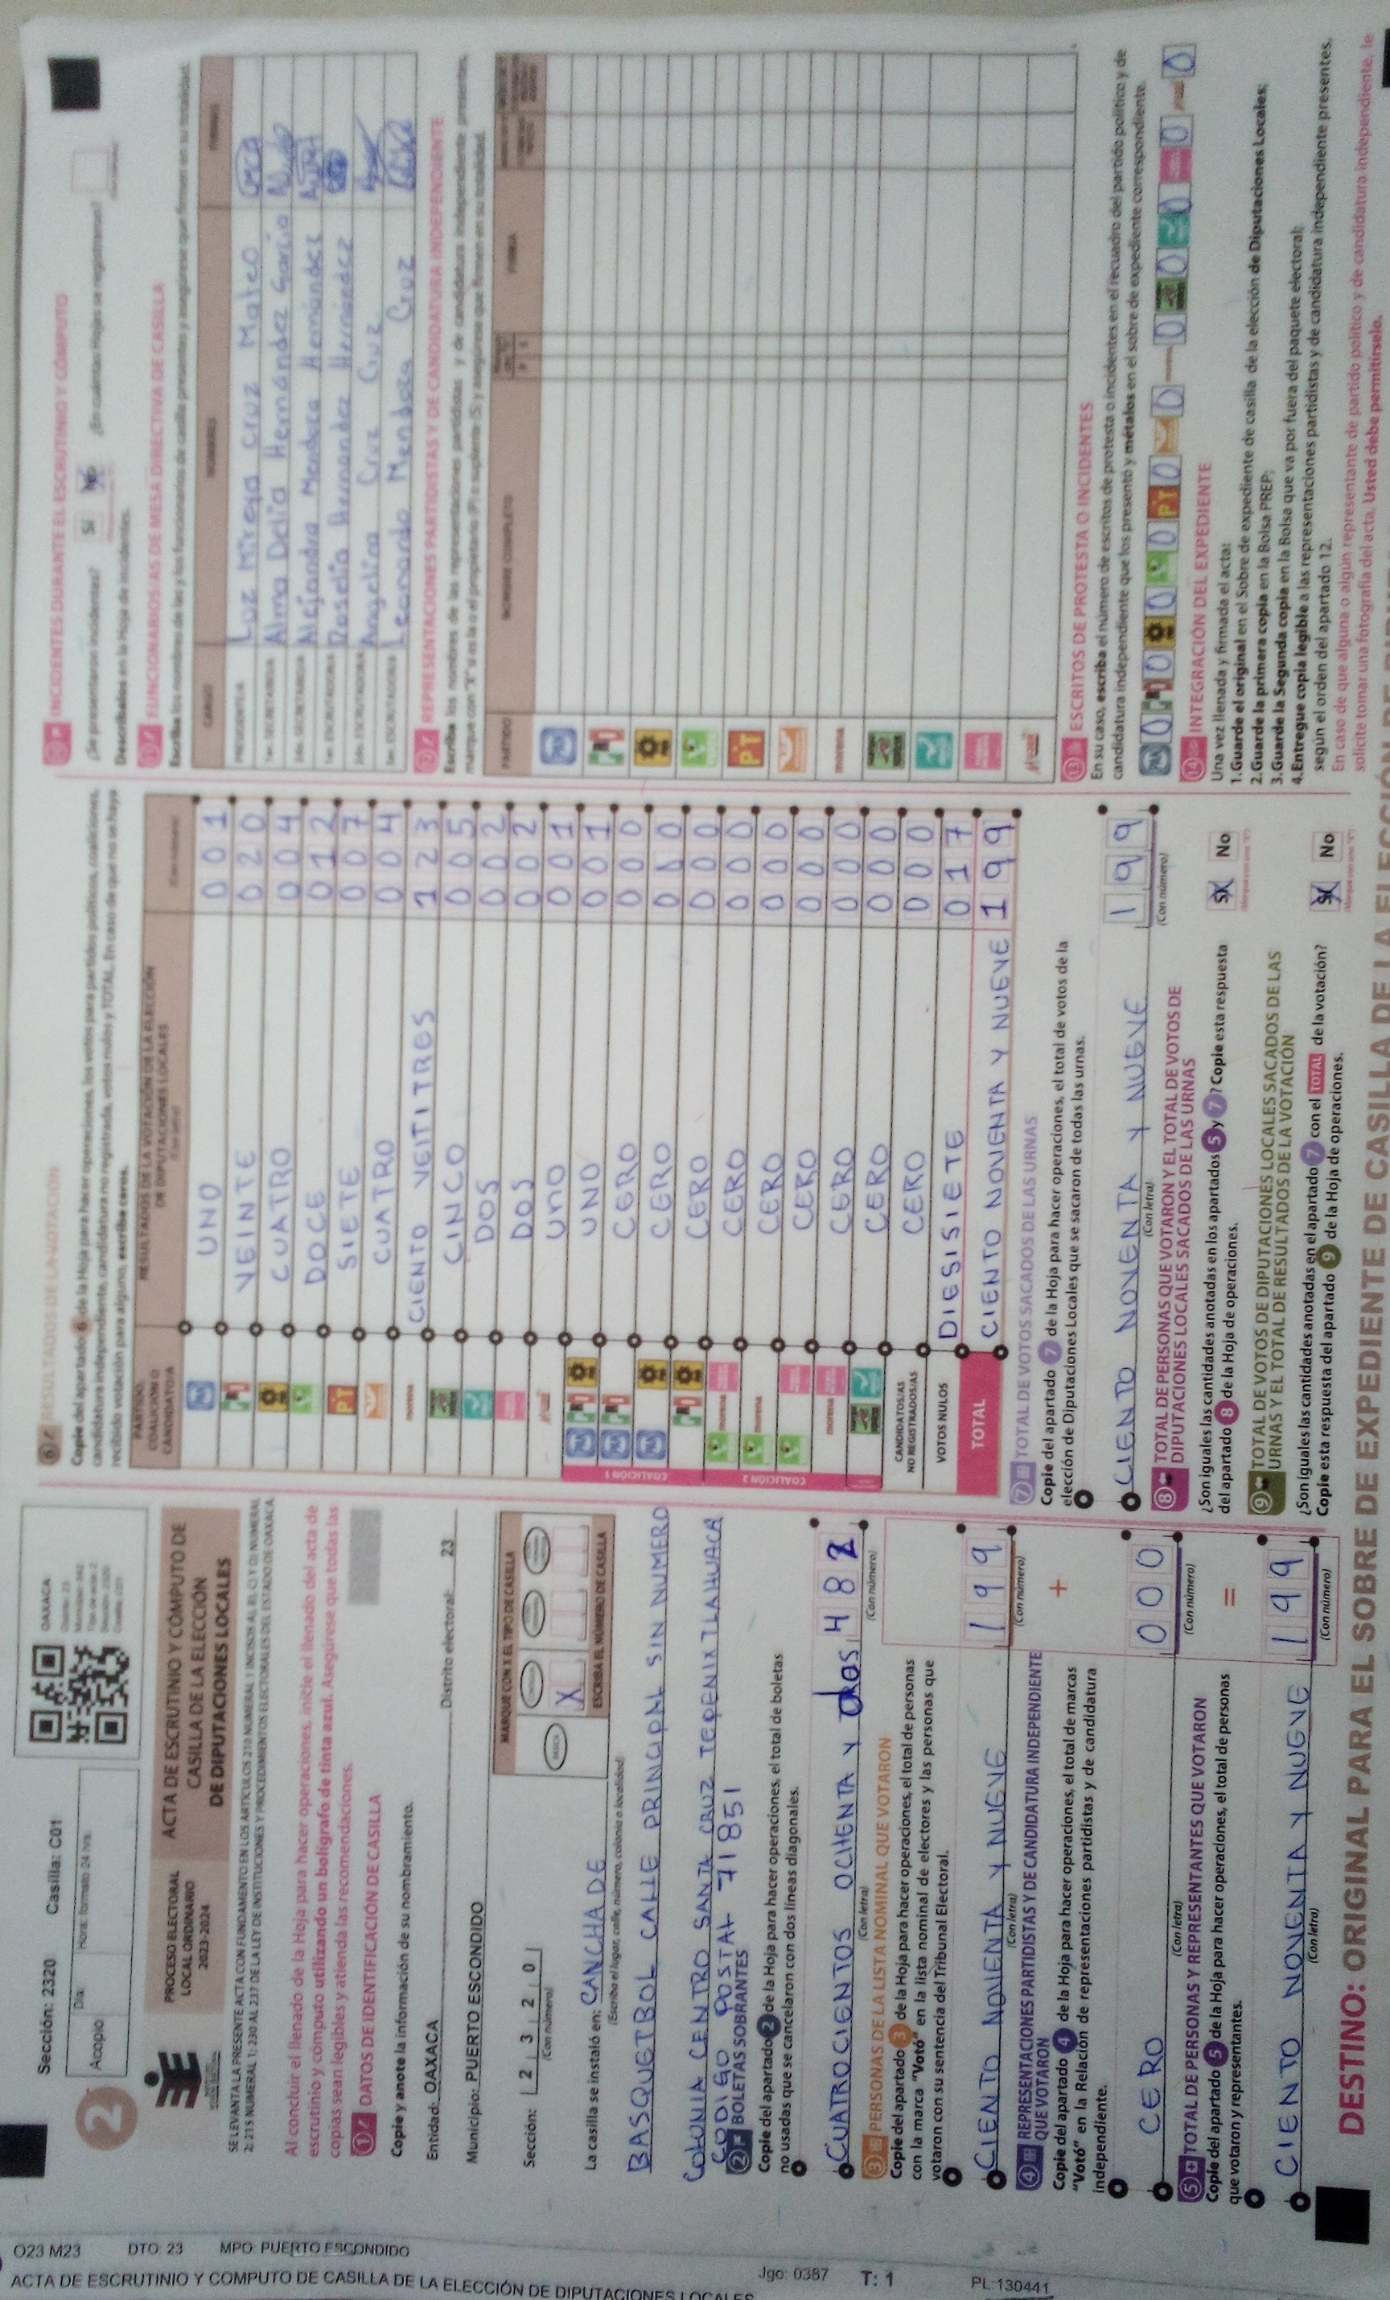 O23 M23
DTO: 23
MPO: PUERTO ESCONDIDO
ACTA DE ESCRUTINIO Y CÓMPUTO DE CASILLA DE LA ELECCIÓN DE DIPUTACIONES LOCALES
Jgo: 0387
T: 1
PL:130441
Sección: 2320 Casilla: C01
2
Acopio
Día:
Hora: formato 24 hrs.
OAXACA
PROCESO ELECTORAL
LOCAL ORDINARIO
2023-2024
ACTA DE ESCRUTINIO Y CÓMPUTO DE
CASILLA DE LA ELECCIÓN
DE DIPUTACIONES LOCALES
SE LEVANTA LA PRESENTE ACTA CON FUNDAMENTO EN LOS ARTÍCULOS 210 NUMERAL 1 INCISOS A), B), C) Y D); NUMERAL
2; 215 NUMERAL 1; 230 AL 237 DE LA LEY DE INSTITUCIONES Y PROCEDIMIENTOS ELECTORALES DEL ESTADO DE OAXACA.
Al concluir el llenado de la Hoja para hacer operaciones, inicie el llenado del acta de
escrutinio y cómputo utilizando un bolígrafo de tinta azul. Asegúrese que todas las
copias sean legibles y atienda las recomendaciones.
1 DATOS DE IDENTIFICACIÓN DE CASILLA
Copie y anote la información de su nombramiento.
Entidad: OAXACA Distrito electoral: 23
Municipio: PUERTO ESCONDIDO
Sección: 2 3 2 0
(Con número)
MARQUE CON X EL TIPO DE CASILLA
X
ESCRIBA EL NÚMERO DE CASILLA
La casilla se instaló en: CANCHA DE
(Escriba el lugar, calle, número, colonia o localidad)
BASQUETBOL CALLE PRINCIPAL SIN NUMERO
COLONIA CENTRO SANTA CRUZ TEPENIXTLAHUACA
CODIGO POSTAL 71851
2 BOLETAS SOBRANTES
Copie del apartado 2 de la Hoja para hacer operaciones, el total de boletas
no usadas que se cancelaron con dos líneas diagonales.
CUATROCIENTOS OCHENTA Y DOS 482
(Con letra) (Con número)
3 PERSONAS DE LA LISTA NOMINAL QUE VOTARON
Copie del apartado 3 de la Hoja para hacer operaciones, el total de personas
con la marca "Votó" en la lista nominal de electores y las personas que
votaron con su sentencia del Tribunal Electoral.
CIENTO NOVENTA Y NUEVE 199
(Con letra) (Con número)
4 REPRESENTACIONES PARTIDISTAS Y DE CANDIDATURA INDEPENDIENTE
QUE VOTARON
Copie del apartado 4 de la Hoja para hacer operaciones, el total de marcas
"Votó" en la Relación de representaciones partidistas y de candidatura
independiente.
+
CERO 000
(Con letra) (Con número)
5 TOTAL DE PERSONAS Y REPRESENTANTES QUE VOTARON
Copie del apartado 5 de la Hoja para hacer operaciones, el total de personas
que votaron y representantes.
=
CIENTO NOVENTA Y NUEVE 199
(Con letra) (Con número)
6 RESULTADOS DE LA VOTACIÓN
Copie del apartado 6 de la Hoja para hacer operaciones, los votos para partidos políticos, coaliciones,
candidatura independiente, candidatura no registrada, votos nulos y TOTAL. En caso de que no se haya
recibido votación para alguno, escriba ceros.
PARTIDO, COALICIÓN O CANDIDATURA
RESULTADOS DE LA VOTACIÓN DE LA ELECCIÓN
DE DIPUTACIONES LOCALES
PAN UNO 001
PRI VEINTE 020
CUATRO 004
DOCE 012
PT SIETE 007
CUATRO 004
morena CIENTO VEITITRES 123
CINCO 005
DOS 002
DOS 002
UNO 001
COALICIÓN 1
UNO 001
CERO 000
CERO 000
CERO 000
COALICIÓN 2
CERO 000
CERO 000
CERO 000
CERO 000
CERO 000
CANDIDATOS/AS
NO REGISTRADOS/AS
CERO 000
VOTOS NULOS DIESISIETE 017
TOTAL CIENTO NOVENTA Y NUEVE 199
7 TOTAL DE VOTOS SACADOS DE LAS URNAS
Copie del apartado 7 de la Hoja para hacer operaciones, el total de votos de la
elección de Diputaciones Locales que se sacaron de todas las urnas.
CIENTO NOVENTA Y NUEVE 199
(Con letra) (Con número)
8 TOTAL DE PERSONAS QUE VOTARON Y EL TOTAL DE VOTOS DE
DIPUTACIONES LOCALES SACADOS DE LAS URNAS
¿Son iguales las cantidades anotadas en los apartados 5 y 7? Copie esta respuesta
del apartado 8 de la Hoja de operaciones.
Sí No
9 TOTAL DE VOTOS DE DIPUTACIONES LOCALES SACADOS DE LAS
URNAS Y EL TOTAL DE RESULTADOS DE LA VOTACIÓN
¿Son iguales las cantidades anotadas en el apartado 7 con el TOTAL de la votación?
Copie esta respuesta del apartado 9 de la Hoja de operaciones.
Sí No
10 INCIDENTES DURANTE EL ESCRUTINIO Y CÓMPUTO
¿Se presentaron incidentes? Sí No ¿En cuántas Hojas se registraron?
Descríbalos en la Hoja de incidentes.
11 FUNCIONARIOS/AS DE MESA DIRECTIVA DE CASILLA
Escriba los nombres de las y los funcionarios de casilla presentes y asegúrese que firmen en su totalidad.
CARGO NOMBRES FIRMAS
PRESIDENTE/A Luz Mireya Cruz Mateo
1er. SECRETARIO/A Alma Delia Hernández Garcia
2do. SECRETARIO/A Alejandra Mendoza Hernández
1er. ESCRUTADOR/A Roselia Hernandez Hernández
2do. ESCRUTADOR/A Angelina Cruz Cruz
3er. ESCRUTADOR/A Leonardo Mendoza Cruz
12 REPRESENTACIONES PARTIDISTAS Y DE CANDIDATURA INDEPENDIENTE
Escriba los nombres de las representaciones partidistas y de candidatura independiente presentes,
marque con "X" si es la o el propietario (P) o suplente (S) y asegúrese que firmen en su totalidad.
PARTIDO NOMBRE COMPLETO FIRMA
PAN
PRI
PT
morena
13 ESCRITOS DE PROTESTA O INCIDENTES
En su caso, escriba el número de escritos de protesta o incidentes en el recuadro del partido político y de
candidatura independiente que los presentó y métalos en el sobre de expediente correspondiente.
0 0 0 0 0 0 0 0 0 0 0
14 INTEGRACIÓN DEL EXPEDIENTE
Una vez llenada y firmada el acta:
1.Guarde el original en el Sobre de expediente de casilla de la elección de Diputaciones Locales;
2.Guarde la primera copia en la Bolsa PREP;
3.Guarde la Segunda copia en la Bolsa que va por fuera del paquete electoral;
4.Entregue copia legible a las representaciones partidistas y de candidatura independiente presentes,
según el orden del apartado 12.
En caso de que alguna o algún representante de partido político y de candidatura independiente, le
solicite tomar una fotografía del acta. Usted debe permitírselo.
DESTINO: ORIGINAL PARA EL SOBRE DE EXPEDIENTE DE CASILLA DE LA ELECCIÓN DE